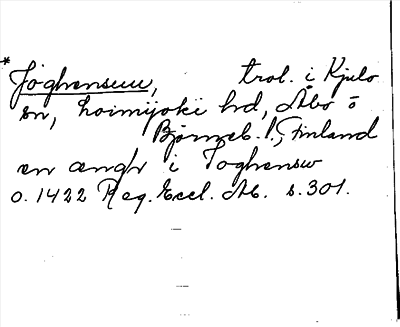 * Joghensuu, trol. i Kjulo
sn, Loimijoki hd, Åbo o
Bjørneb. l., Finland
en ængh i Joghensw
o. 1422 Reg. Eccl. Ab. s. 301.